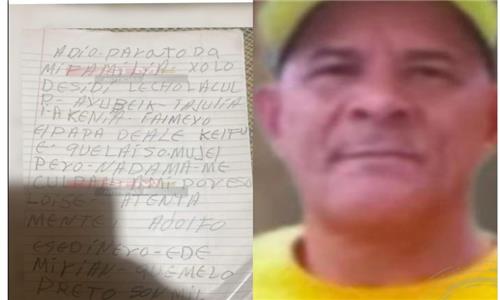 ADIO PARATODA
MIFAMILIA XOLO
DESIDI LECHOLACUL
P- AYUBEIK- TRIUIIA
IAKENIA- FAIMEYO
E/PAPA DEALE KEIFU
E- QUELAISO MUJEI
PERO NADAMA-ME
CULPABAN POVESO
LOISE- ATENTA
MENTE ADOLFO
ESEDINEYO-EDE
MIRIAN-QUEMELO
PRETO SON MIL